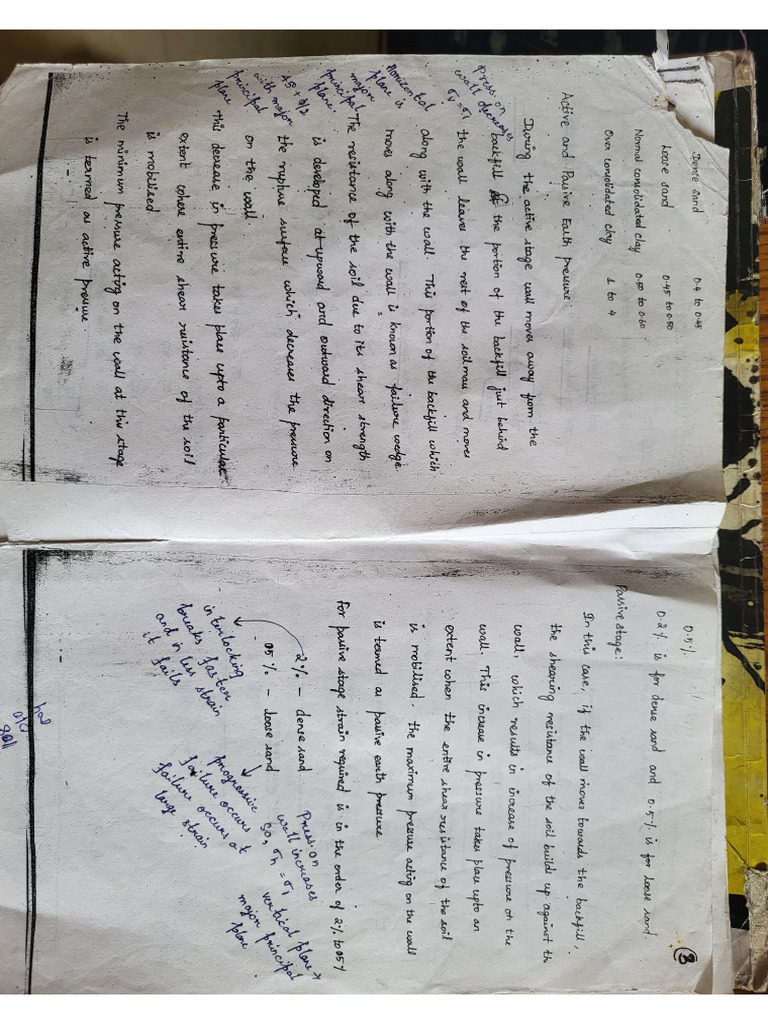 Dense sand 0.4 to 0.45
Loose sand 0.45 to 0.50
Normal consolidated clay 0.50 to 0.60
Over consolidated clay 1 to 4
Active and Passive Earth pressure:
During the active stage wall moves away from the
backfill the portion of the backfill just behind
the wall leaves the rest of the soil mass and moves
along with the wall. This portion of the backfill which
moves along with the wall is known as failure wedge.
The resistance of the soil due to its shear strength
is developed at upward and outward direction on
the rupture surface which decreases the pressure
on the wall.
This decrease in pressure takes place upto a particular
extent where entire shear resistance of the soil
is mobilised
The minimum pressure acting on the wall at this stage
is termed as active pressure
Press. on
wall decreases
σv = σ1
Horizontal
plane is
major
principal
plane.
45 + Ø/2
with major
principal
plane
3
0.5%.
0.2% is for dense sand and 0.5% is for loose sand
Passive stage:
In this case, if the wall moves towards the backfill,
the shearing resistance of the soil builds up against th
wall, which results in increase of pressure on the
wall. This increase in pressure takes place upto an
extent when the entire shear resistance of the soil
is mobilised. the maximum pressure acting on the wall
is termed as passive earth pressure
for passive stage strain required is in the order of 2% to 05%
2% - dense sand
05% - loose sand
interlocking
breaks faster
and in less strain
it fails
progressive
failure occurs
failure occurs at
large strain
Press. on
wall increases
so, σh = σ1
vertical plane →
major principal
plane